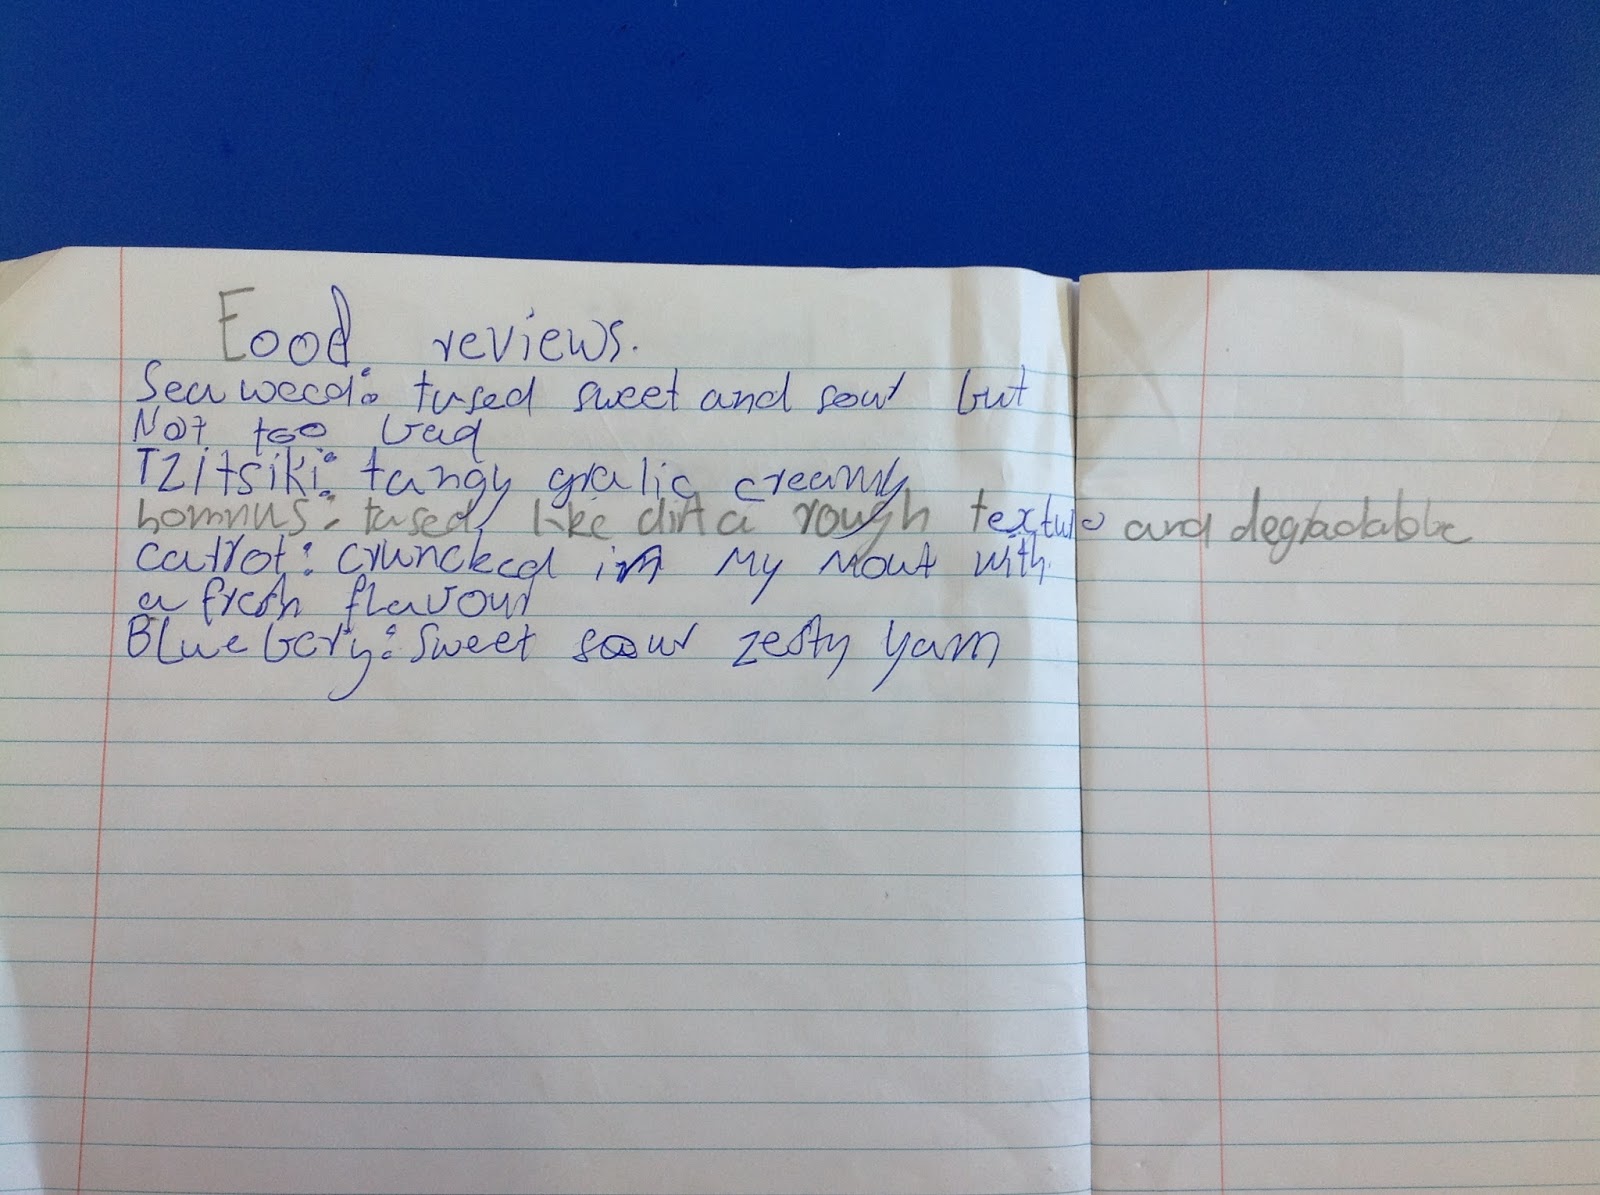 Food reviews.
Sea weed: tased sweet and sour but
Not too bad
Tzitsiki: tangy gralic creamy
homnus: tased like dirt a rough texture and degradabble
carrot: cruncked in my mout with
a fresh flavour
Blue bery: sweet sour zesty yam